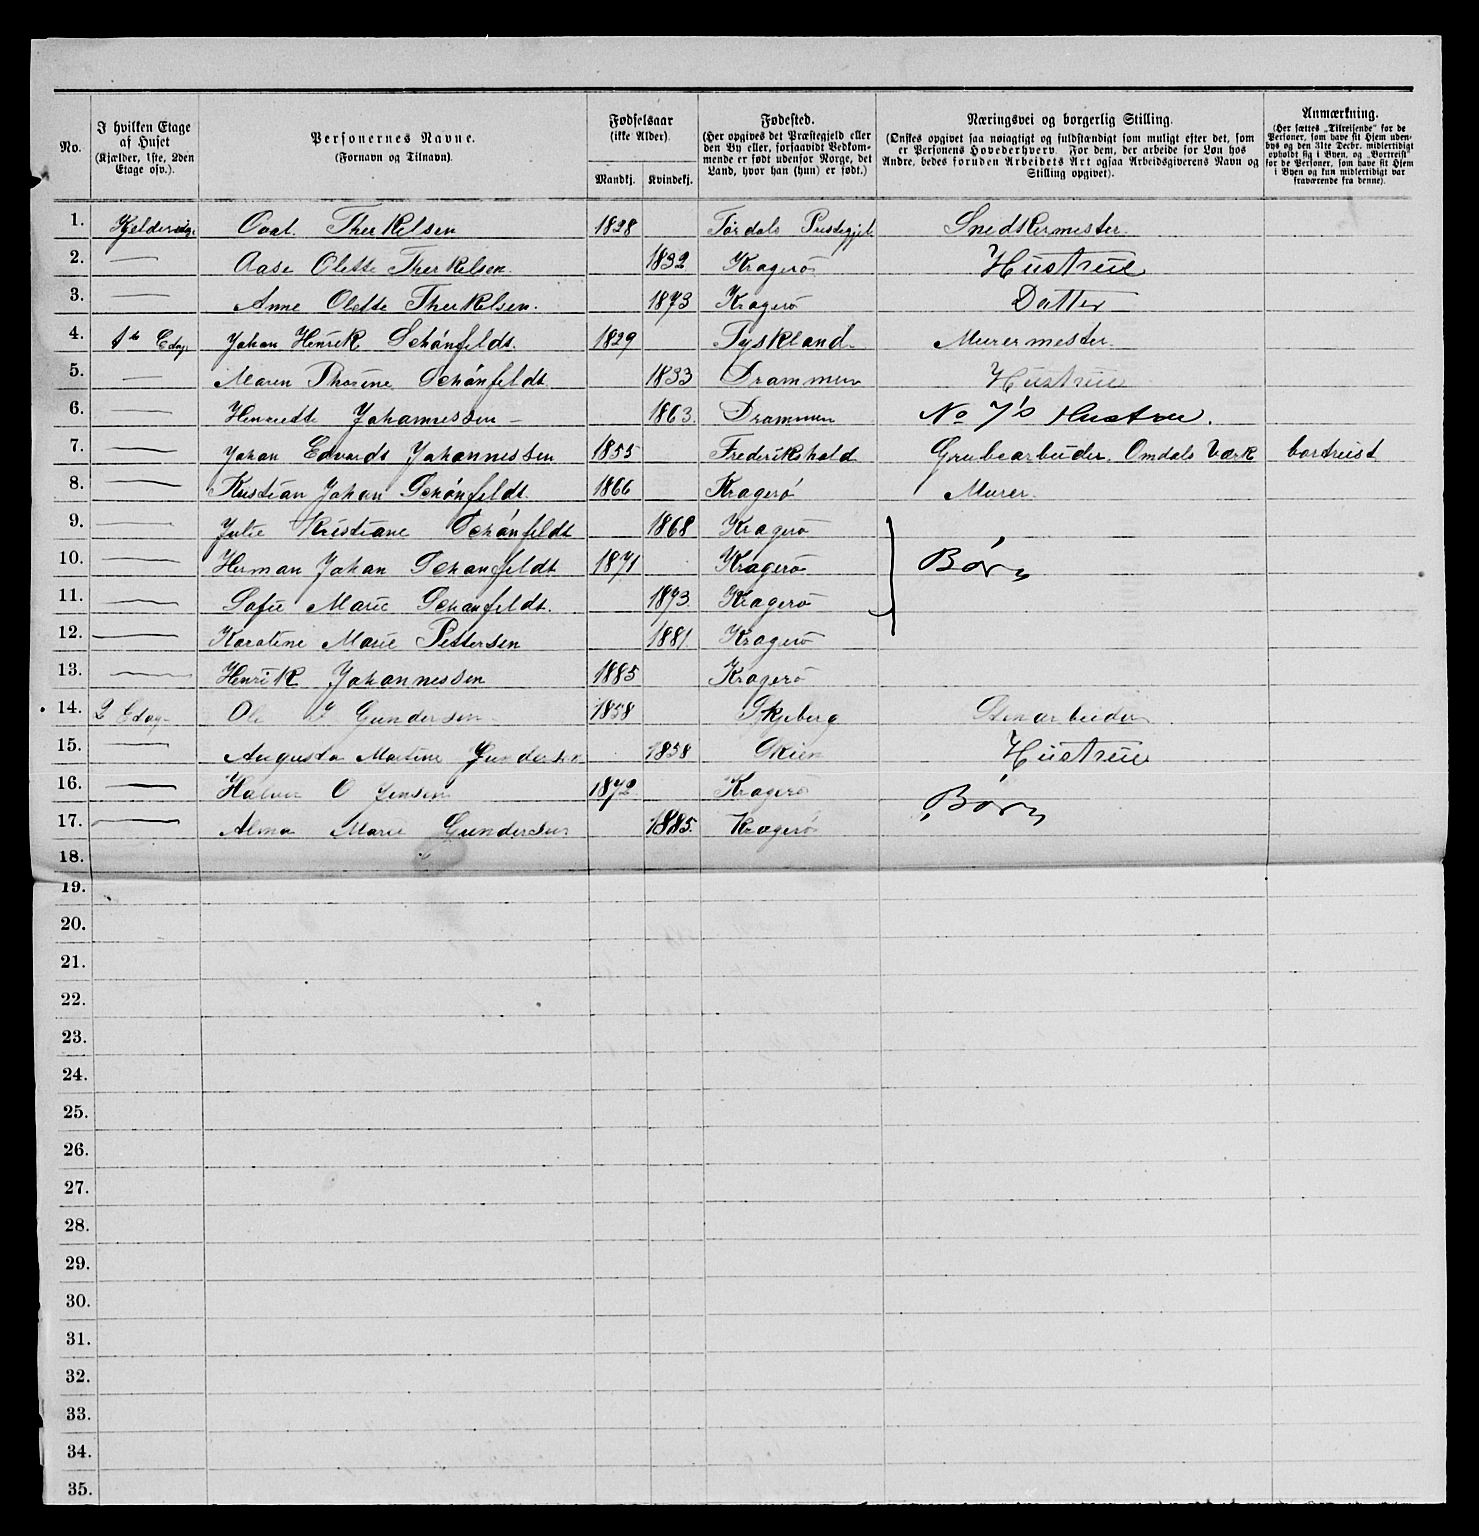 No.
I hvilken Etage af Huset (Kjælder, 1ste, 2den Etage osv.).
Personernes Navne. (Fornavn og Tilnavn).
Fødselsaar (ikke Alder). Mandkj. Kvindekj.
Fødested. (Her opgives det Præstegjeld eller den By eller, forsaavidt Vedkommende er født udenfor Norge, det Land, hvor han (hun) er født.)
Næringsvei og borgerlig Stilling. (Ønskes opgivet saa nøiagtigt og fuldstændigt som muligt efter det, som er Personens Hovederhverv. For dem, der arbeide for Løn hos Andre, bedes foruden Arbeidets Art ogsaa Arbeidsgiverens Navn og Stilling opgivet).
Anmærkning. (Her sættes „Tilreisende“ for de Personer, som have sit Hjem udenbys og den 31te Decbr. midlertidigt opholdt sig i Byen, og „Bortreist“ for de Personer, som have sit Hjem i Byen og kun midlertidigt var fraværende fra denne).
1. Therkelsen 1828 Tørdals Snedkermester
2. — Aase Olette Therkelsen. 1832 Kragerö Hustrue
3. — Anne Olette Therkelsen. 1873 Kragerö Datter
4. 1ste Etag. Johan Henrik Schönfeldt. 1829 Tyskland Murermester
5. — Maren Thorine Schönfeldt 1833 Drammen Hustrue
6. — Henriette Johannessen — 1863. Drammen No 7's Hustru.
7. — Johan Edvardt Johannessen 1855 Frederikshald Grubearbeider. Omdals Værk bortreist
8. — Kristian Johan Schönfeldt. 1866 Kragerö Murer.
9. — Julie Kristiane Schönfeldt 1868 Kragerö
10. — Herman Johan Schønfeldt 1871 Kragerö Børn
11. — Sofie Marie Schønfeldt. 1873. Kragerö
12. — Karoline Marie Pettersen 1881. Kragerö
13. — Henrik Johannessen 1885 Kragerö
14. 2 Etag Ole Gundersen 1858 Skjeberg Stenarbeider
15. — Augusta Martine Gundersen 1858 Skien Hustrue
16. — Halvor O Jensen 1872. Kragerö Børn
17. — Alma Marie Gundersen 1885. Kragerö
18.
19.
20.
21.
22.
23.
24.
25.
26.
27.
28.
29.
30.
31.
32.
33.
34.
35.